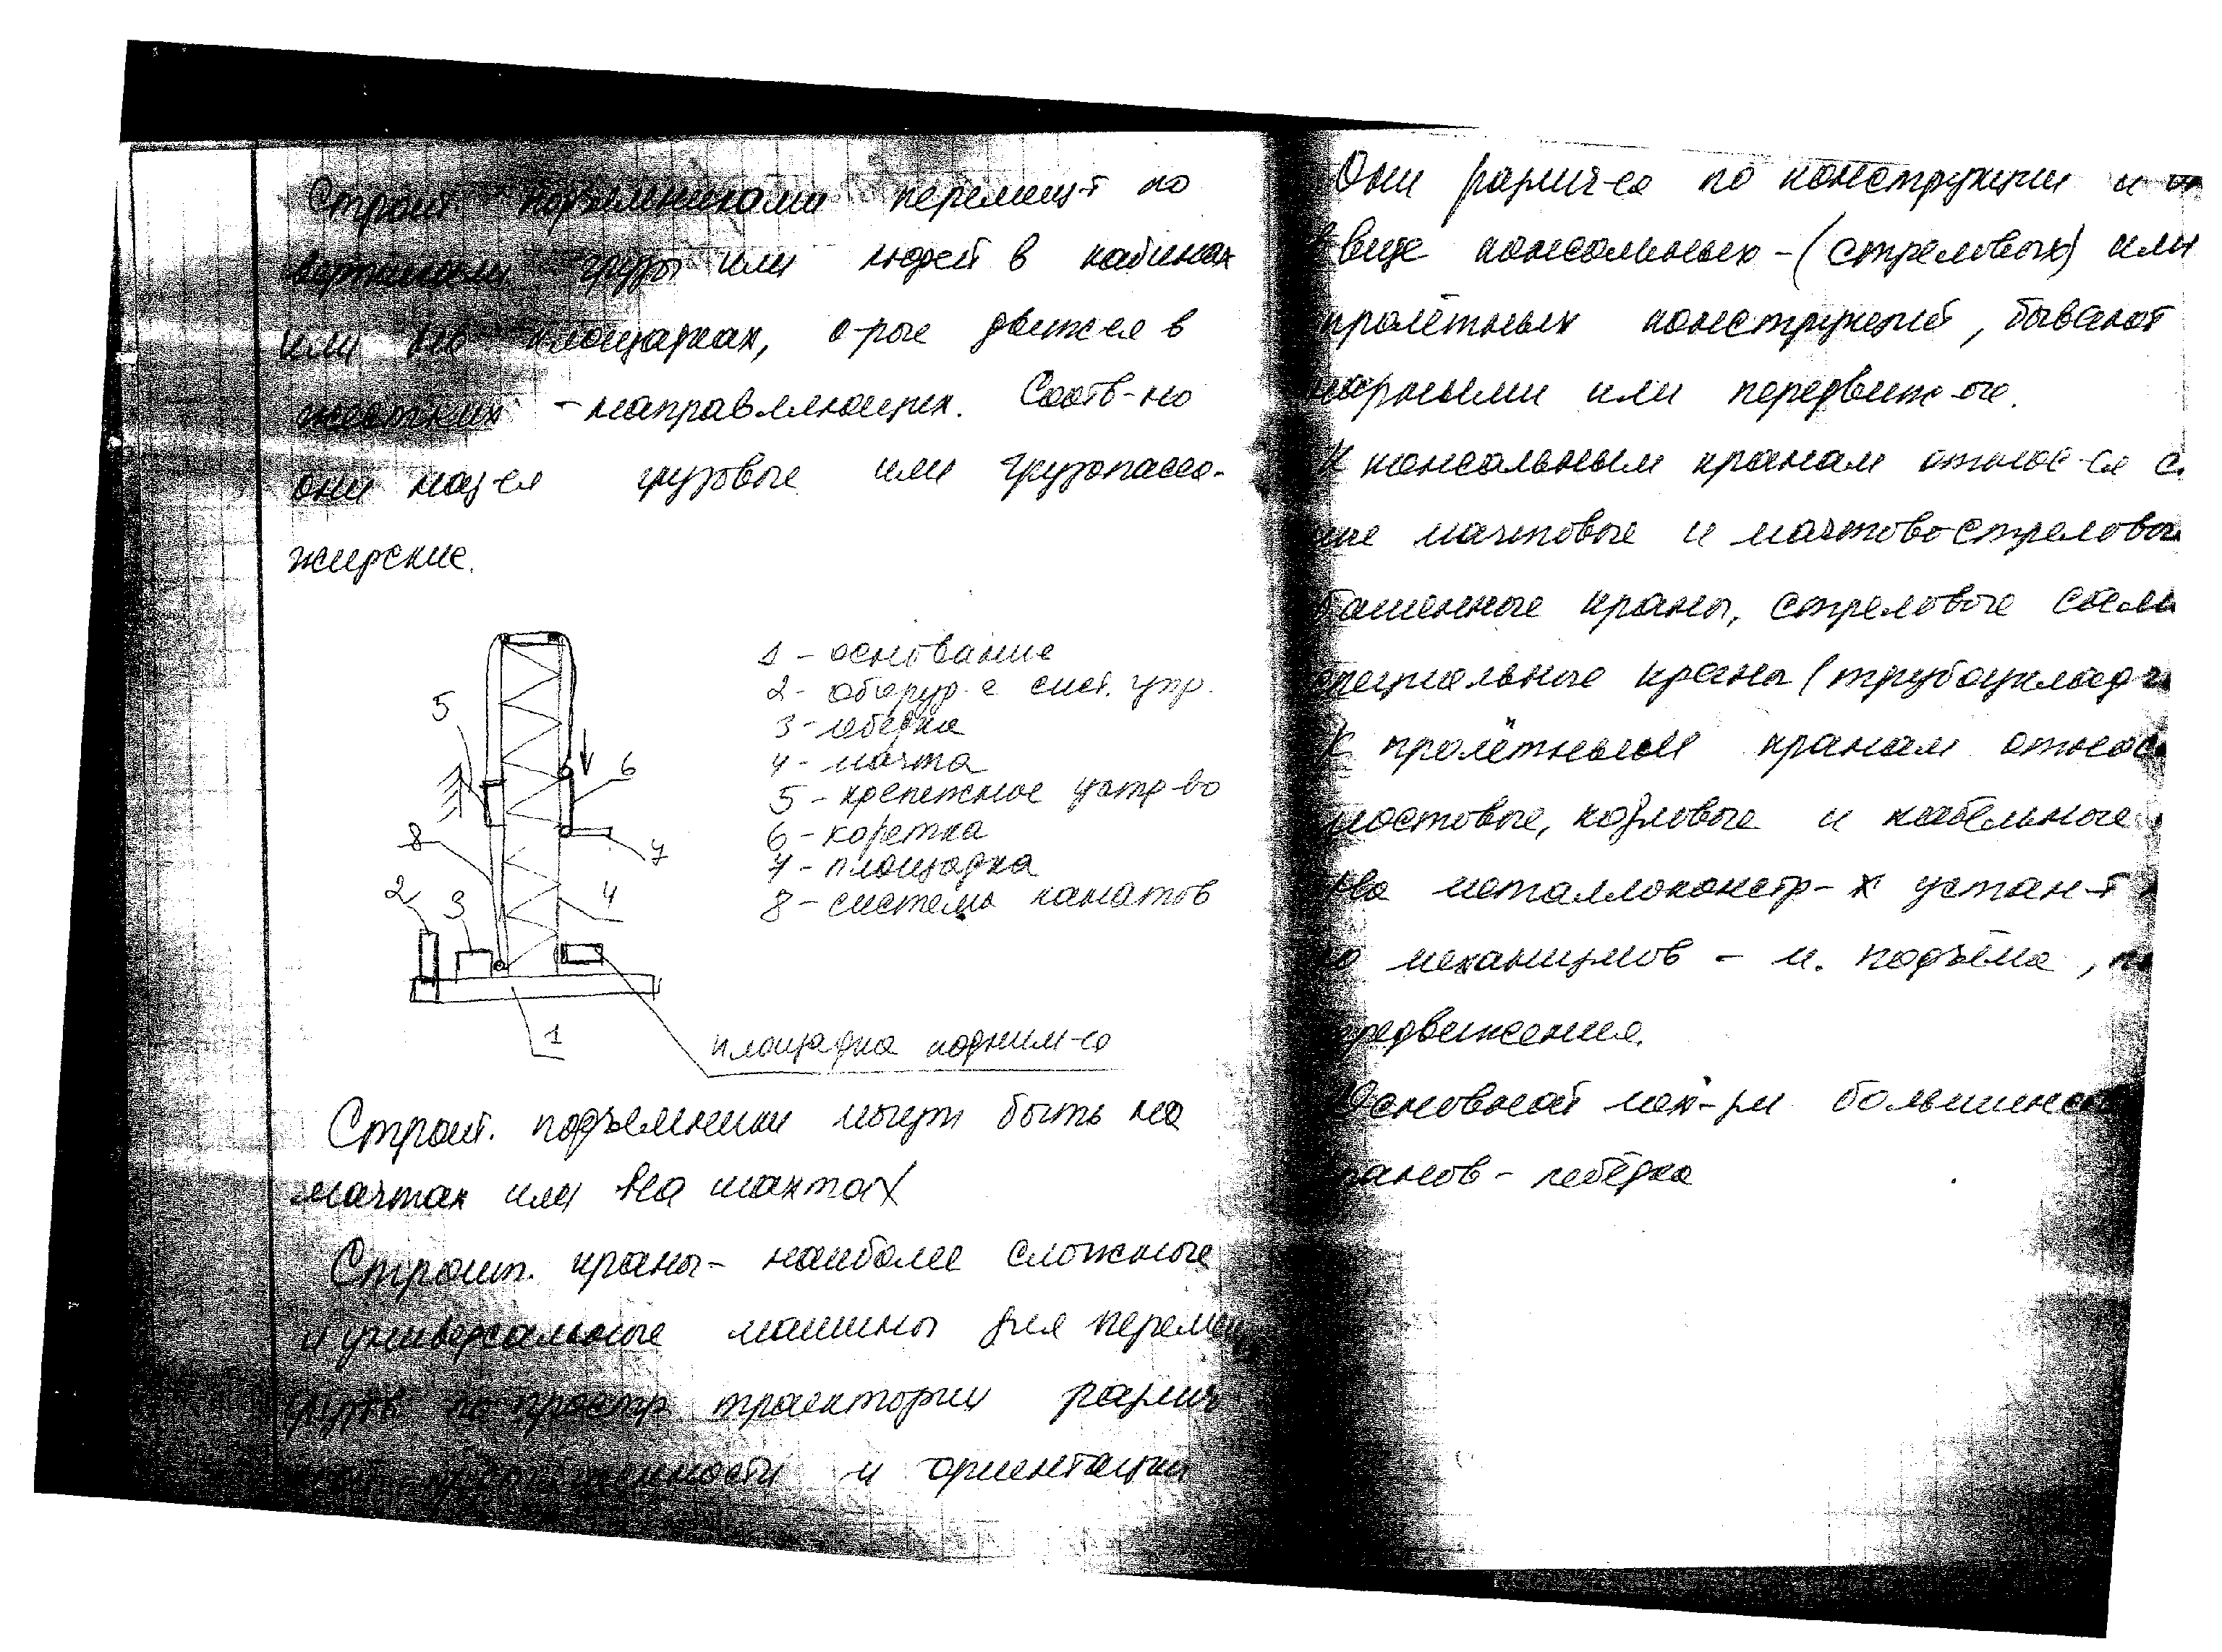 Строит. подъёмниками перемещ-т по
вертикали грузы или людей в кабинах
или на площадках, о-рые движ-ся в
жестких - направляющих. Соотв-но
они наз-ся грузовые или грузопасса-
жирские.
1 - основание
2 - оборуд. с сист. упр.
3 - лебёдка
4 - мачта
5 - крепёжное устр-во
6 - каретка
7 - площадка
8 - система канатов
5
6
8
7
2
3
4
1
площадка подним-ся
Строит. подъемники могут быть на
мачтах или на шахтах
Строит. краны - наиболее сложные
и универсальные машины для перемещ
грузов по простр траектории различ
и ориентации
Они различ-ся по конструкции и
в виде консольных - (стреловых) или
пролётных конструкций, бывают
или передвиж-ые.
К консольным кранам относ-ся
мачтовые и мачтовострелов
башенные краны, стреловые сам
специальные краны (трубоуклад
К пролётным кранам относ
мостовые, козловые и кабельные
металлоконстр-х устан-т
механизмов - м. подъёма,
передвижения.
Основной мех-зм большинс
кранов - лебёдка